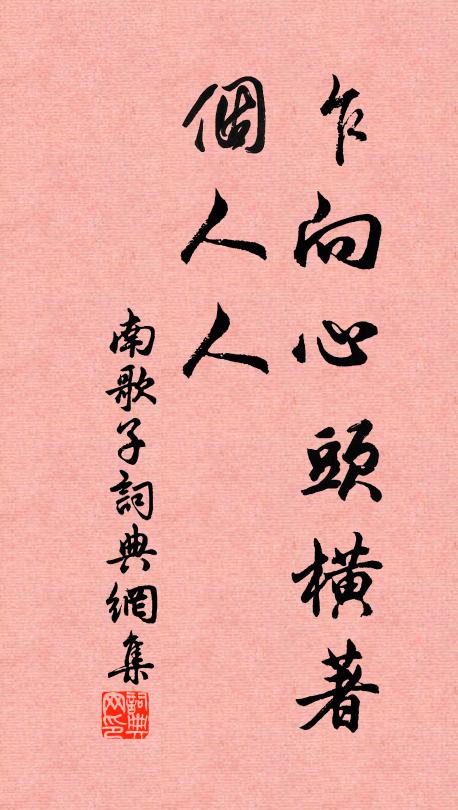 乍向心頭橫著
個人人
南歌子詞典網集
詞典
网印